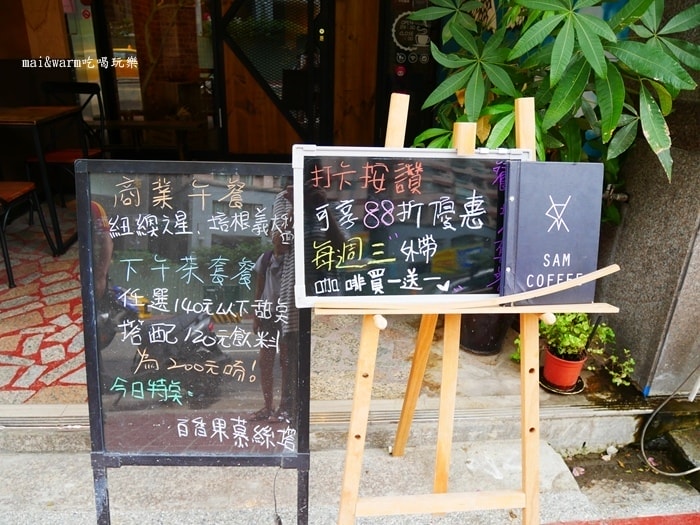 mai&warm吃喝玩樂
商業午餐
紐繽之星、培根義大利
下午茶套餐
任選140元以下甜點
搭配120元飲料
為200元唷!
今日特點:
百香果慕絲塔
打卡按讚
可享88折優惠
每週三 外帶
咖啡買一送一
SAM
COFFEE